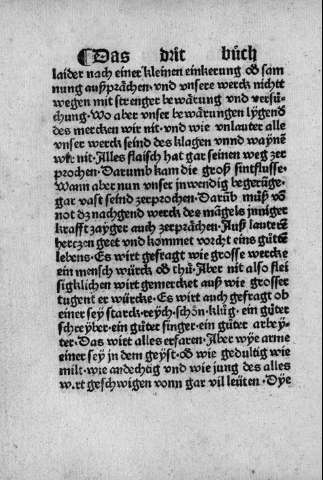 ¶Das drit bůch
laider nach einer kleinen einkerung oð sam
nung außprächen · vnd vnsere werck nichtt
wegen mit strenger bewärung vnd versů⸗
chung · Wo aber vnser bewärungen lygend
des mercken wir nit · vnd wie vnlauter alle
vnser werck seind des klagen vnnd waynẽ
wir nit · Alles flaisch hat gar seinen weg zer
prochen · Darumb kam die groß sintflusse ·
Wann aber nun vnser jnwendig begerũge ·
gar vast seind zerprochen · Darũb můß võ
not dz nachgend werck des mãgels jnniger
krafft zayger auch zerprächen · Auß lauterẽ
herczen geet vnd kommet vorcht eins gůttẽ
lebens · Es wirt gefragt wie grosse wercke
ein mensch würck oð thů · Aber nit also flei
sigklichen wirt gemercket auß wie grosser
tugent er würcke · Es wirt auch gefragt ob
einer sey starck · reych · schön · klůg · ein gůter
schreyber · ein gůter singer · ein gůter arbey⸗
ter · Das wirt alles erfaren · Aber wye arme
einer sey jn dem geyst · oð wie gedultig wie
milt · wie andechtig vnd wie jung des alles
wirt geschwigen vonn gar vil leüten · Dye